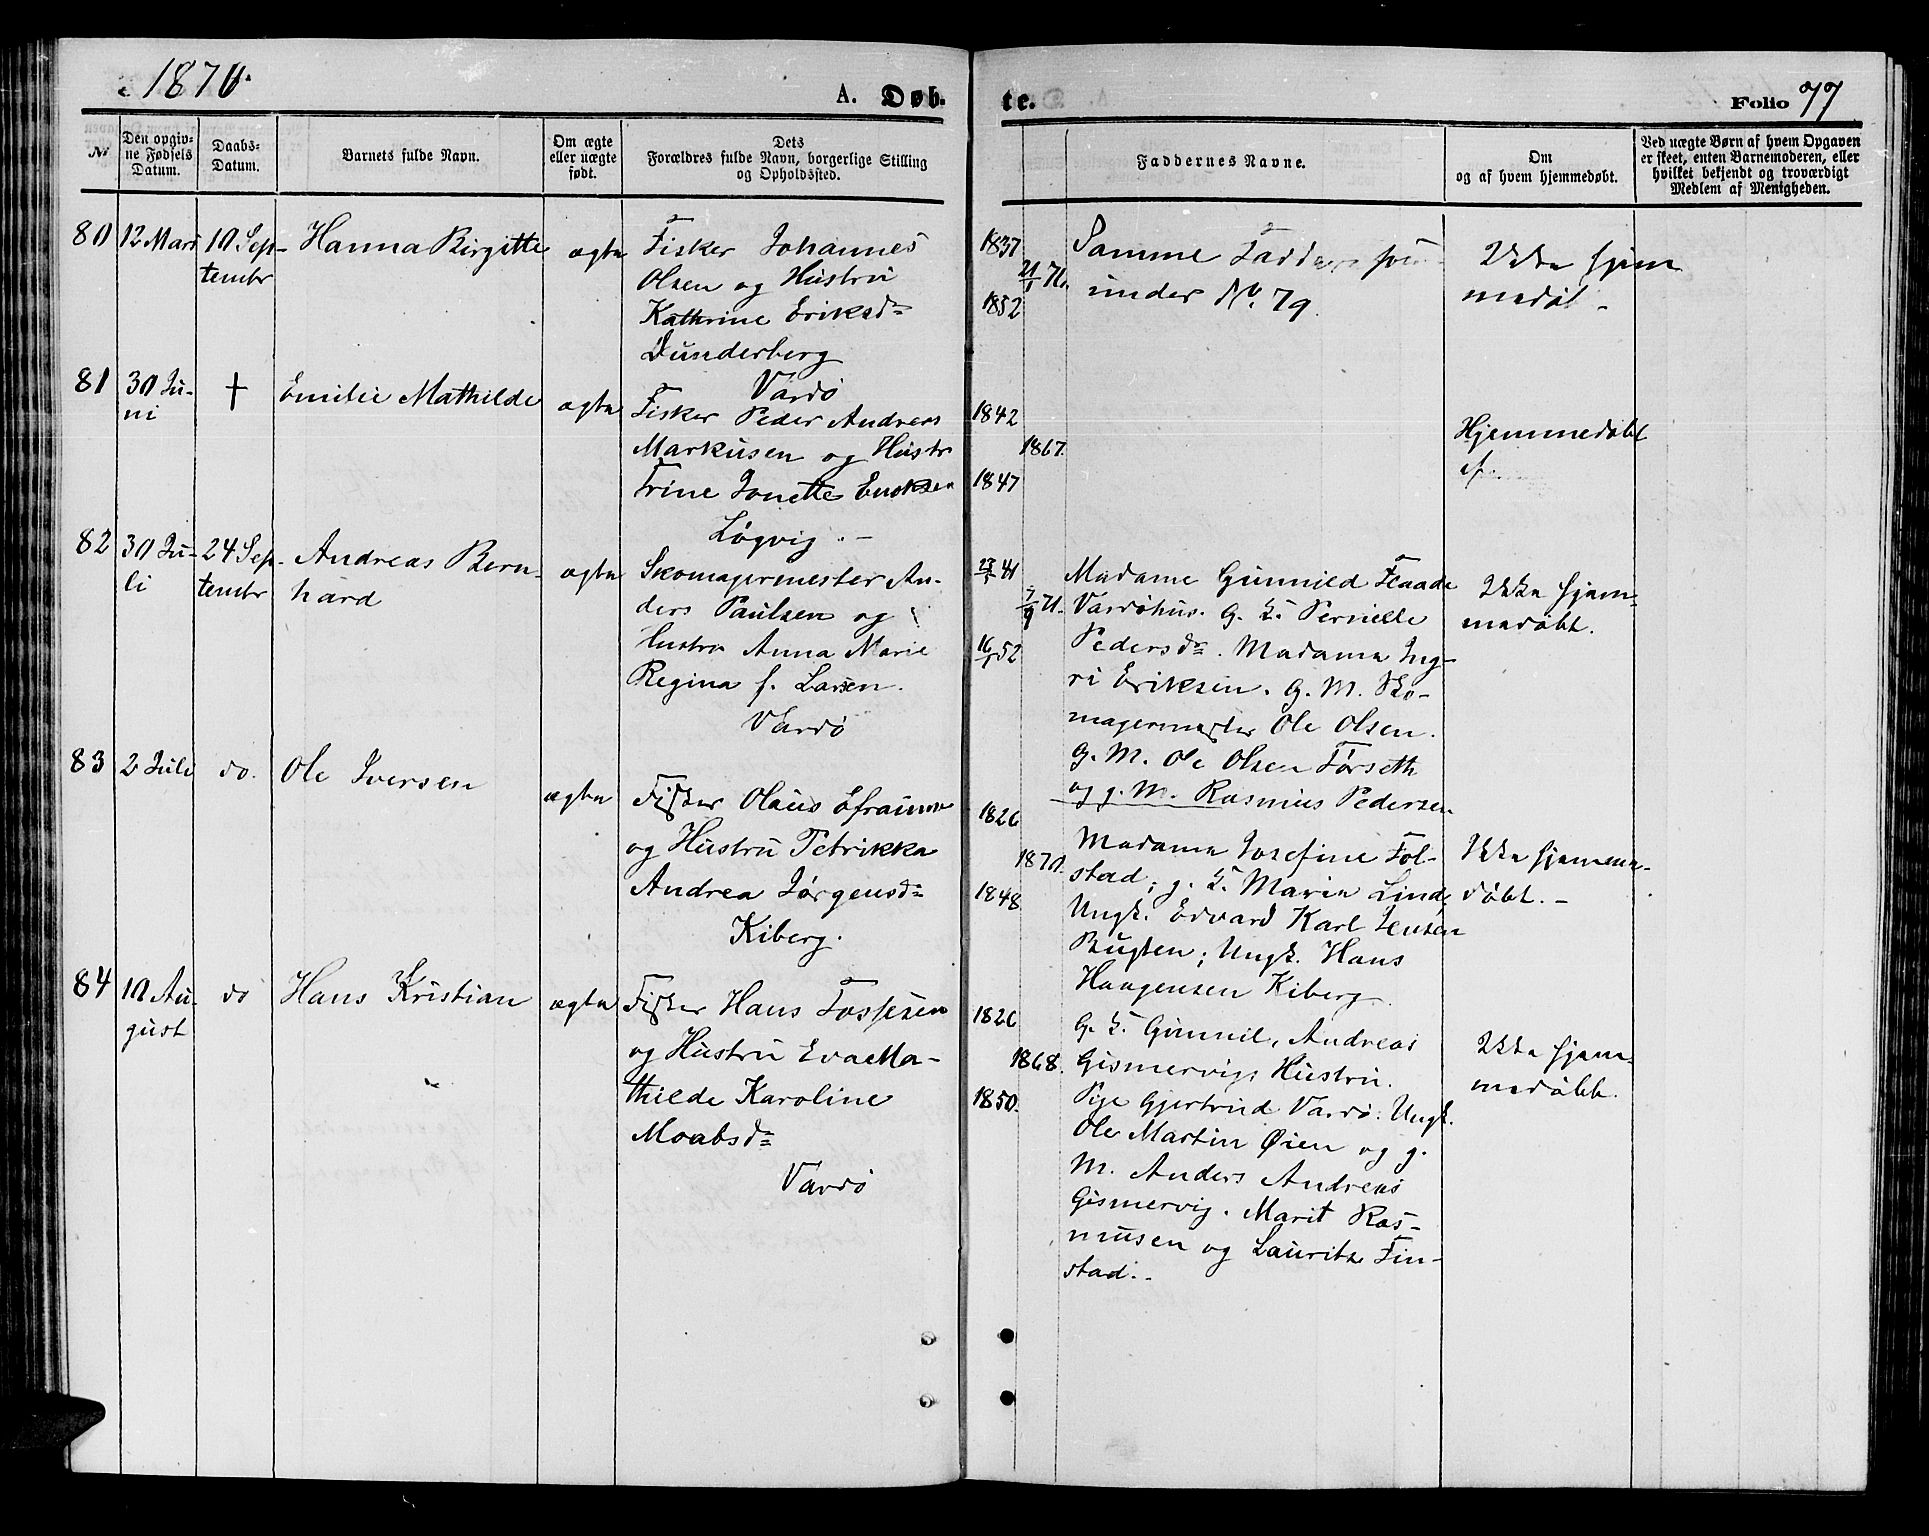 1876.
A. Døb-
te.
Folio 77
№
Den opgiv-
ne Fødsels
Datum.
Daabs-
Datum.
Barnets fulde Navn.
Om ægte
eller uægte
født.
Dets
Forældres fulde Navn, borgerlige Stilling
og Opholdssted.
Faddernes Navne.
Om
og af hvem hjemmedøbt.
Ved uægte Børn af hvem Opgaven
er skeet, enten Barnemoderen, eller
hvilket bekjendt og troværdigt
Medlem af Menigheden.
80
12 Mars
10 Sep-
tembr
Hanna Birgitte
ægte
Fisker Johannes
Olsen og Hustru
Kathrine Eriksdr
Dunderberg
Vardö
1837
21/1 71.
1852
Samme Faddere som
under No. 79.
Ikke hjem
medøbt -
81
30 Ju-
ni
†
Emilie Mathilde
ægte
Fisker Peder Andreas
Markusen og Hustr
Trine Jonette Enoksen
Løgvig. -
1842
1867.
1847
Hjemmedøbt
82
30 Ju-
li
24 Sep-
tembr
Andreas Bern-
hard
ægte
Skomagermester An-
ders Paulsen og
Hustru Anna Marie
Regina f. Larsen.
Vardö
41
7/9 71.
16/1 52
Madame Gunnild Flaade
Vardöhus. G. K. Pernille
Pedersdr. Madame Ing-
ri Eriksen. G. M. Sko-
magermester Ole Olsen.
G. M. Ole Olsen Førseth
og g. M. Rasmus Pedersen.
Ikke hjem-
medøbt.
83
2 Juli
do.
Ole Iversen
ægte
Fisker Olaus Efraim
og Hustru Petrikka
Andrea Jørgensdr
Kiberg.
1826
1870.
1848
Madame Josefine Fol-
stad; g. K. Maria Lind;
Ungk. Edvard Karl Jensen
Bugten; Ungk. Hans
Haagensen Kiberg.
Ikke hjemme-
døbt. -
84
10 Au-
gust
do
Hans Kristian
ægte
Fisker Hans Tossesen
og Hustru Eva Ma-
thilde Karoline
Moabsdr
Vardö
1826
1868.
1850.
G. K. Gunnil, Andreas
Gismervigs Hustru.
Pige Gjertrud Vardö. Ungk.
Ole Martin Øien og g.
M. Anders Andreas
Gismervig. Marit Ras-
musen og Lauritz Fin-
stad. -
Ikke hjem-
medøbt.